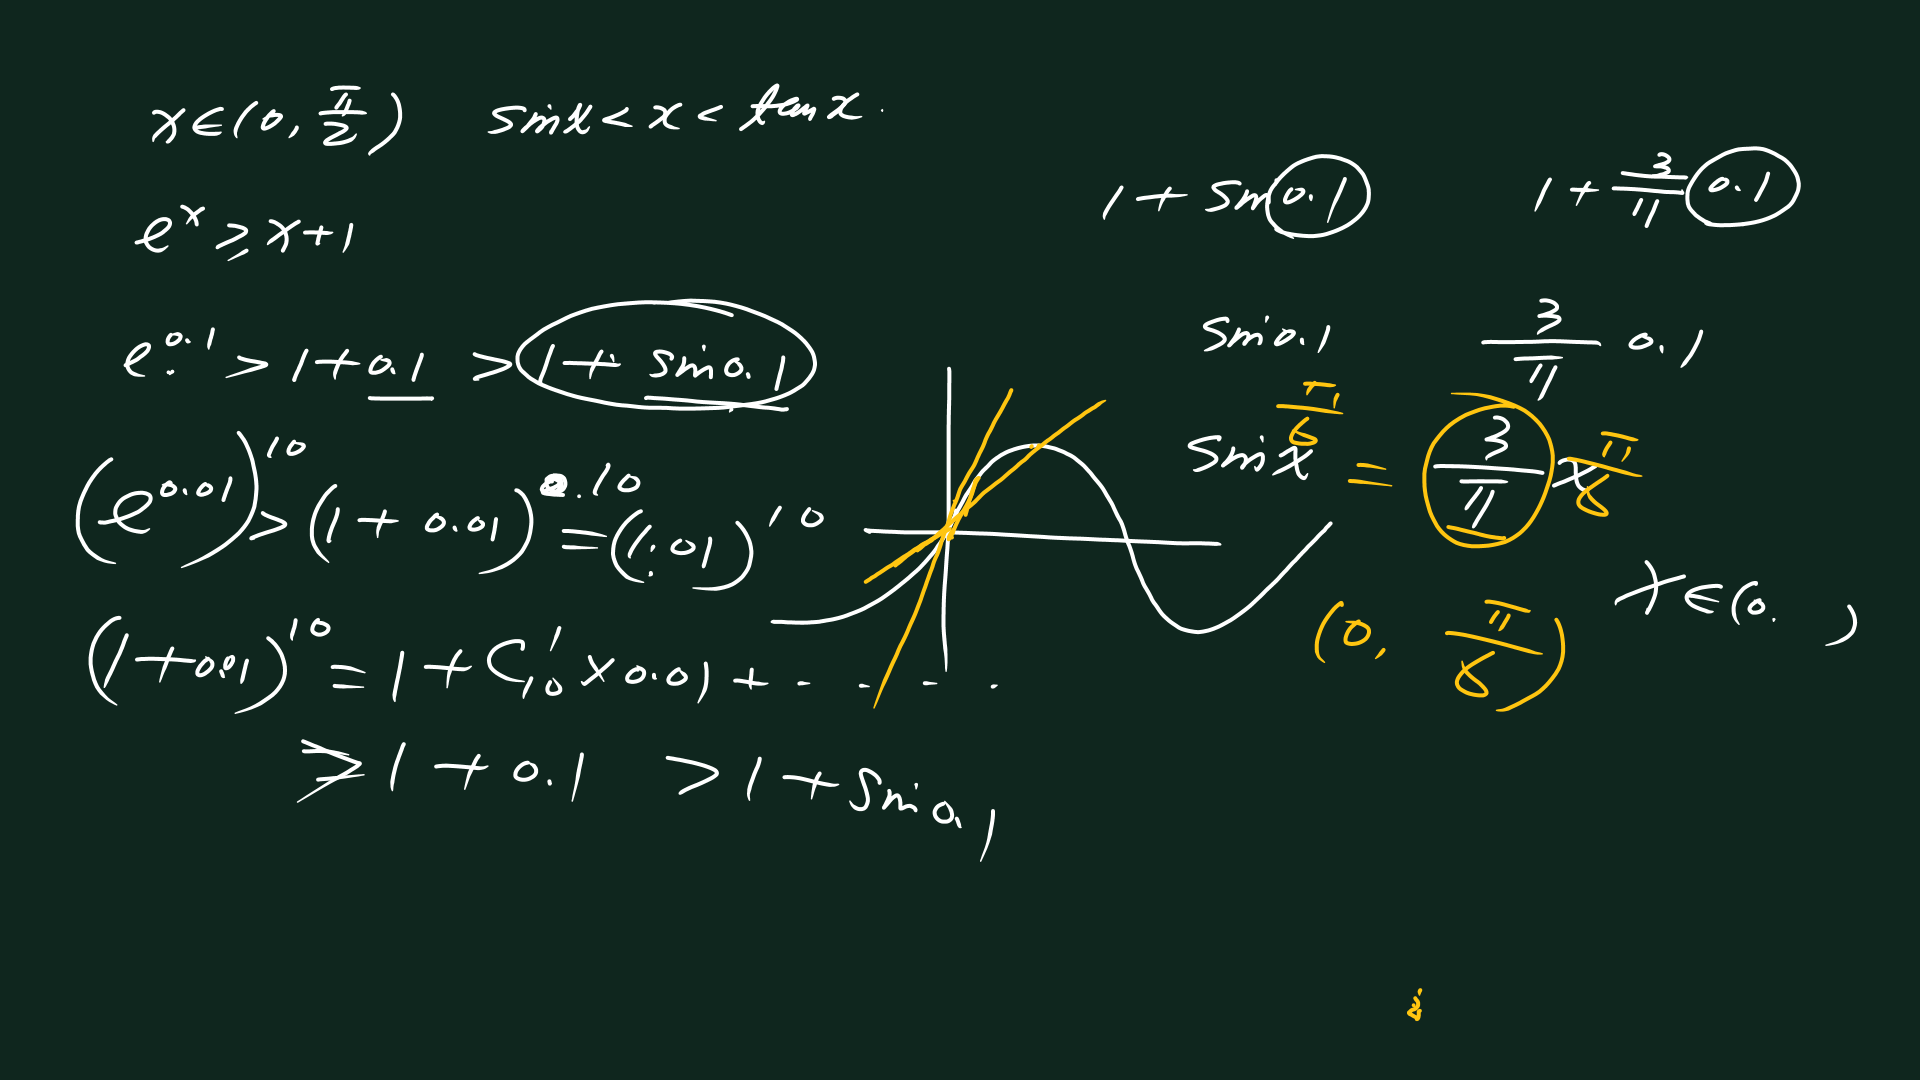 x∈(0, π/2) sinx < x < tanx
e^x ⩾ x+1
e^0.1 > 1+0.1 > 1+ sin0.1
(e^0.01)^10 > (1+0.01)^10 = (1.01)^10
(1+0.01)^10 = 1+C_10^1 ×0.01+ · · · ·
⩾ 1+0.1 > 1+sin0.1
1+sin0.1 1+ 3/π 0.1
sin0.1 3/π 0.1
π/6
sinx = 3/π x π/6
x∈(0. )
(0, π/6)